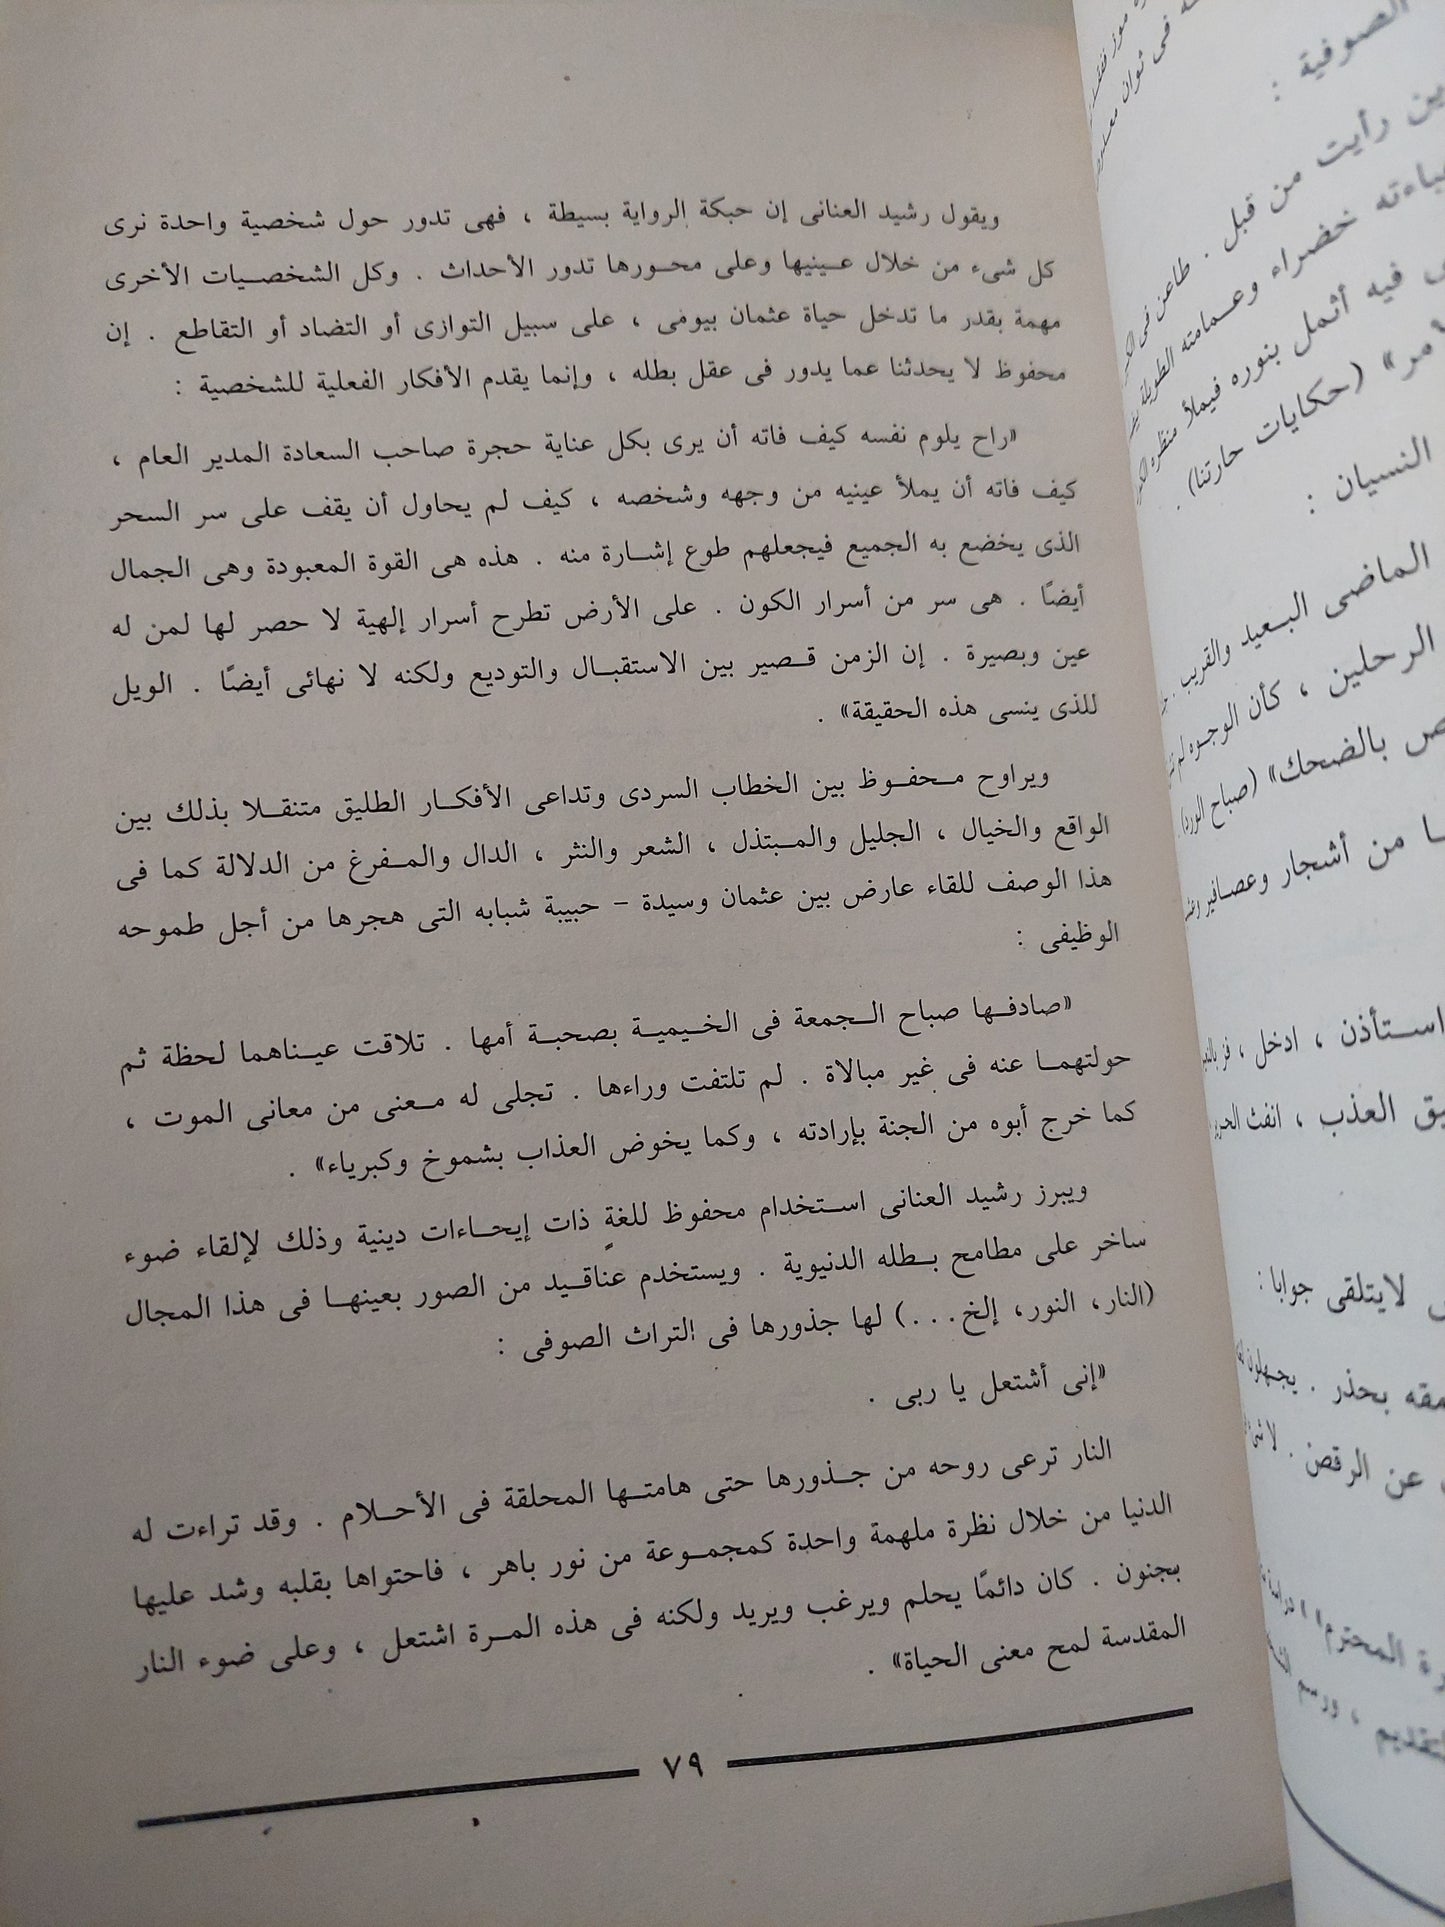 ويقول رشيد العنانى إن حبكة الرواية بسيطة ، فهى تدور حول شخصية واحدة نرى
كل شىء من خلال عينيها وعلى محورها تدور الأحداث . وكل الشخصيات الأخرى
مهمة بقدر ما تدخل حياة عثمان بيومى ، على سبيل التوازى أو التضاد أو التقاطع . إن
محفوظ لا يحدثنا عما يدور فى عقل بطله ، وإنما يقدم الأفكار الفعلية للشخصية :
«راح يلوم نفسه كيف فاته أن يرى بكل عناية حجرة صاحب السعادة المدير العام ،
كيف فاته أن يملأ عينيه من وجهه وشخصه ، كيف لم يحاول أن يقف على سر السحر
الذى يخضع به الجميع فيجعلهم طوع إشارة منه . هذه هى القوة المعبودة وهى الجمال
أيضًا . هى سر من أسرار الكون . على الأرض تطرح أسرار إلهية لا حصر لها لمن له
عين وبصيرة . إن الزمن قصير بين الاستقبال والتوديع ولكنه لا نهائى أيضًا . الويل
للذى ينسى هذه الحقيقة» .
ويراوح محفوظ بين الخطاب السردى وتداعى الأفكار الطليق متنقلا بذلك بين
الواقع والخيال ، الجليل والمبتذل ، الشعر والنثر ، الدال والمفرغ من الدلالة كما فى
هذا الوصف للقاء عارض بين عثمان وسيدة – حبيبة شبابه التى هجرها من أجل طموحه
الوظيفى :
«صادفها صباح الجمعة فى الخيمية بصحبة أمها . تلاقت عيناهما لحظة ثم
حولتهما عنه فى غير مبالاة . لم تلتفت وراءها . تجلى له معنى من معانى الموت ،
كما خرج أبوه من الجنة بإرادته ، وكما يخوض العذاب بشموخ وكبرياء» .
ويبرز رشيد العنانى استخدام محفوظ للغةٍ ذات إيحاءات دينية وذلك لإلقاء ضوء
ساخر على مطامح بطله الدنيوية . ويستخدم عناقيد من الصور بعينها فى هذا المجال
(النار، النور، إلخ...) لها جذورها فى التراث الصوفى :
«إنى أشتعل يا ربى .
النار ترعى روحه من جذورها حتى هامتها المحلقة فى الأحلام . وقد تراءت له
الدنيا من خلال نظرة ملهمة واحدة كمجموعة من نور باهر ، فاحتواها بقلبه وشد عليها
بجنون . كان دائمًا يحلم ويرغب ويريد ولكنه فى هذه المرة اشتعل ، وعلى ضوء النار
المقدسة لمح معنى الحياة» .
٧٩
الصوفية :
رأيت من قبل . طاعن فى
خضراء وعمامته الطويلة
فيه أثمل بنوره فيملأ
(حكايات حارتنا)
النسيان :
الماضى البعيد والقريب .
الرحلين ، كأن الوجوه لم
بالضحك» (صباح الورد) .
من أشجار وعصافير
استأذن ، ادخل ،
العذب ، انفث
لايتلقى جوابا :
بحذر . يجهلون
عن الرقص . لا شىء